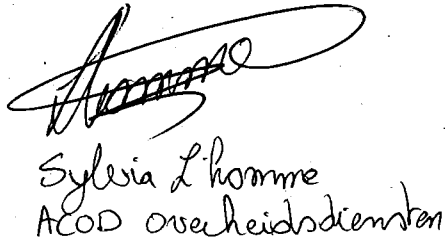 Sylvia L'homme
ACOD overheidsdiensten